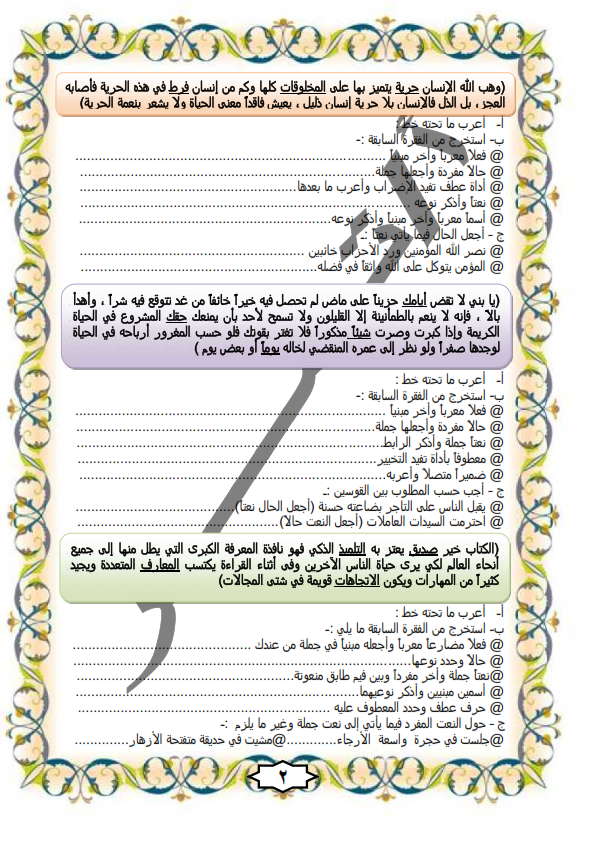 (وهب الله الإنسان حرية يتميز بها على المخلوقات كلها وكم من إنسان فرط في هذه الحرية فأصابه
العجز ، بل الذل فالإنسان بلا حرية إنسان ذليل ، يعيش فاقداً معنى الحياة ولا يشعر بنعمة الحرية)
أ- أعرب ما تحته خط :
ب- استخرج من الفقرة السابقة :-
@ فعلاً معرباً وأخر مبنياً ........................................
@ حالاً مفردة وأجعلها جملة........................................
@ أداة عطف تفيد الإضراب وأعرب ما بعدها........................................
@ نعتاً وأذكر نوعه ........................................
@ أسماً معرباً وأخر مبنياً وأذكر نوعه........................................
ج - أجعل الحال فيما يأتي نعتاً :ـ
@ نصر الله المؤمنين ورد الأحزاب خائبين ........................................
@ المؤمن يتوكل على الله واثقاً في فضله........................................
(يا بني لا تقض أيامك حزيناً على ماض لم تحصل فيه خيراً خائفاً من غد تتوقع فيه شراً ، وأهدأ
بالا ، فإنه لا ينعم بالطمأنينة إلا القليلون ولا تسمح لأحد بأن يمنعك حقك المشروع في الحياة
الكريمة وإذا كبرت وصرت شيئاً مذكوراً فلا تغتر بقوتك فلو حسب المغرور أرباحه في الحياة
لوجدها صفراً ولو نظر إلى عمره المنقضي لخاله يوماً أو بعض يوم )
أ- أعرب ما تحته خط :
ب- استخرج من الفقرة السابقة :-
@ فعلاً معرباً وأخر مبنياً ........................................
@ حالاً مفردة وأجعلها جملة........................................
@ نعتاً جملة وأذكر الرابط........................................
@ معطوفاً بأداة تفيد التخيير........................................
@ ضميراً متصلاً وأعربه........................................
ج - أجب حسب المطلوب بين القوسين :ـ
@ يقبل الناس على التاجر بضاعته حسنة (أجعل الحال نعتاً)........................................
@ احترمت السيدات العاملات (أجعل النعت حالاً)........................................
(الكتاب خير صديق يعتز به التلميذ الذكي فهو نافذة المعرفة الكبرى التي يطل منها إلى جميع
أنحاء العالم لكي يرى حياة الناس الآخرين وفى أثناء القراءة يكتسب المعارف المتعددة ويجيد
كثيراً من المهارات ويكون الاتجاهات قويمة في شتى المجالات)
أ- أعرب ما تحته خط :
ب- استخرج من الفقرة السابقة ما يلي :-
@ فعلاً مضارعاً معرباً وأجعله مبنياً في جملة من عندك ........................................
@ حالاً وحدد نوعها........................................
@نعتاً جملة وأخر مفرداً وبين فيم طابق منعوتة........................................
@ أسمين مبنيين وأذكر نوعيهما........................................
@ حرف عطف وحدد المعطوف عليه ........................................
ج - حول النعت المفرد فيما يأتي إلى نعت جملة وغير ما يلزم :-
@جلست في حجرة واسعة الأرجاء.............@مشيت في حديقة متفتحة الأزهار..............
٢